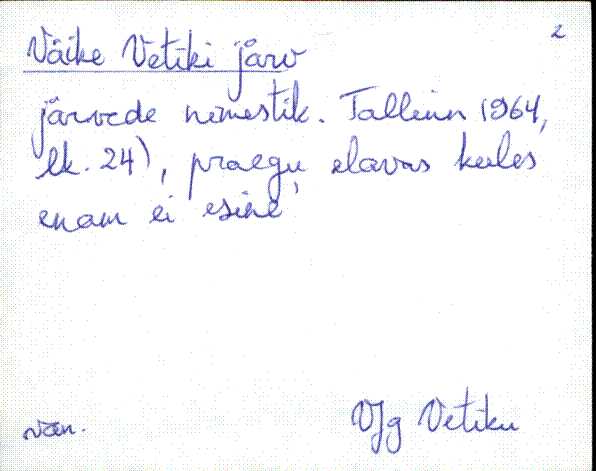 2
Väike Vetiki järv
järvede nimestik. Tallinn 1964,
lk. 24), praegu elavas keeles
enam ei esine
Vän.
VJg Vetiku